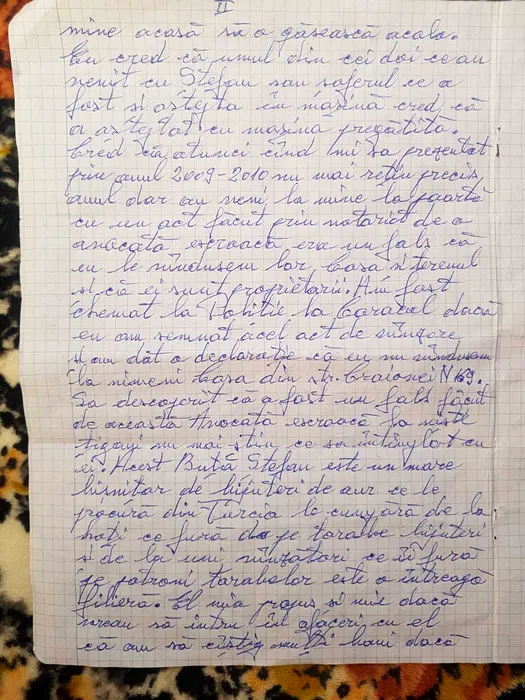 II
mine acasă să o găsească acolo.
Eu cred că unul din cei doi ce au
venit cu Ștefan sau șoferul ce a
fost și aștepta în mașină cred că
a așteptat cu mașină pregătită.
Cred că atunci cînd mi sa prezentat
prin anul 2009-2010 nu mai rețin precis
anul dar au veni la mine la poartă
cu un act făcut prin notariat de o
avocată escroacă era un fals că
eu le vîndusem lor, casa și terenul
și că ei sunt proprietarii. Am fost
chemat la Poliție la Caracal dacă
eu am semnat acel act de vînzare
și am dat o declarație că eu nu vîndusem
la nimeni casa din str. Craiovei N 169.
Sa descoperit ca a fost un fals făcut
de aceasta Avocată escroacă la niște
țigani nu mai știu ce sa întîmplat cu
ei. Acest Buță Ștefan este un mare
bișnițar de bijuteri de aur ce le
procură din Turcia le cumpără de la
hoți ce fură de pe tarabe bijuteri
și de la uni vînzători ce îi fură
pe patroni tarabelor este o întreagă
filieră. El mia propus și mie dacă
vreau să intru în afaceri cu el
că am să cîștig mulți bani dacă